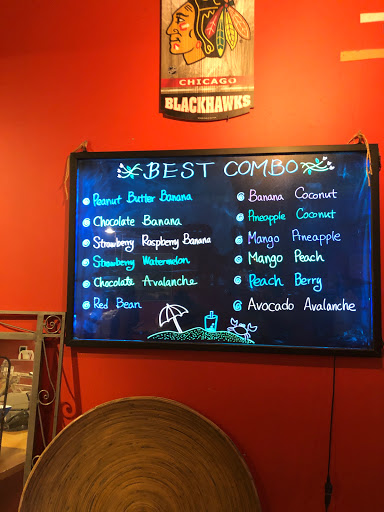 CHICAGO
BLACKHAWKS
BEST COMBO
Peanut Butter Banana
Chocolate Banana
Strawberry Raspberry Banana
Strawberry Watermelon
Chocolate Avalanche
Red Bean
Banana Coconut
Pineapple Coconut
Mango Pineapple
Mango Peach
Peach Berry
Avocado Avalanche